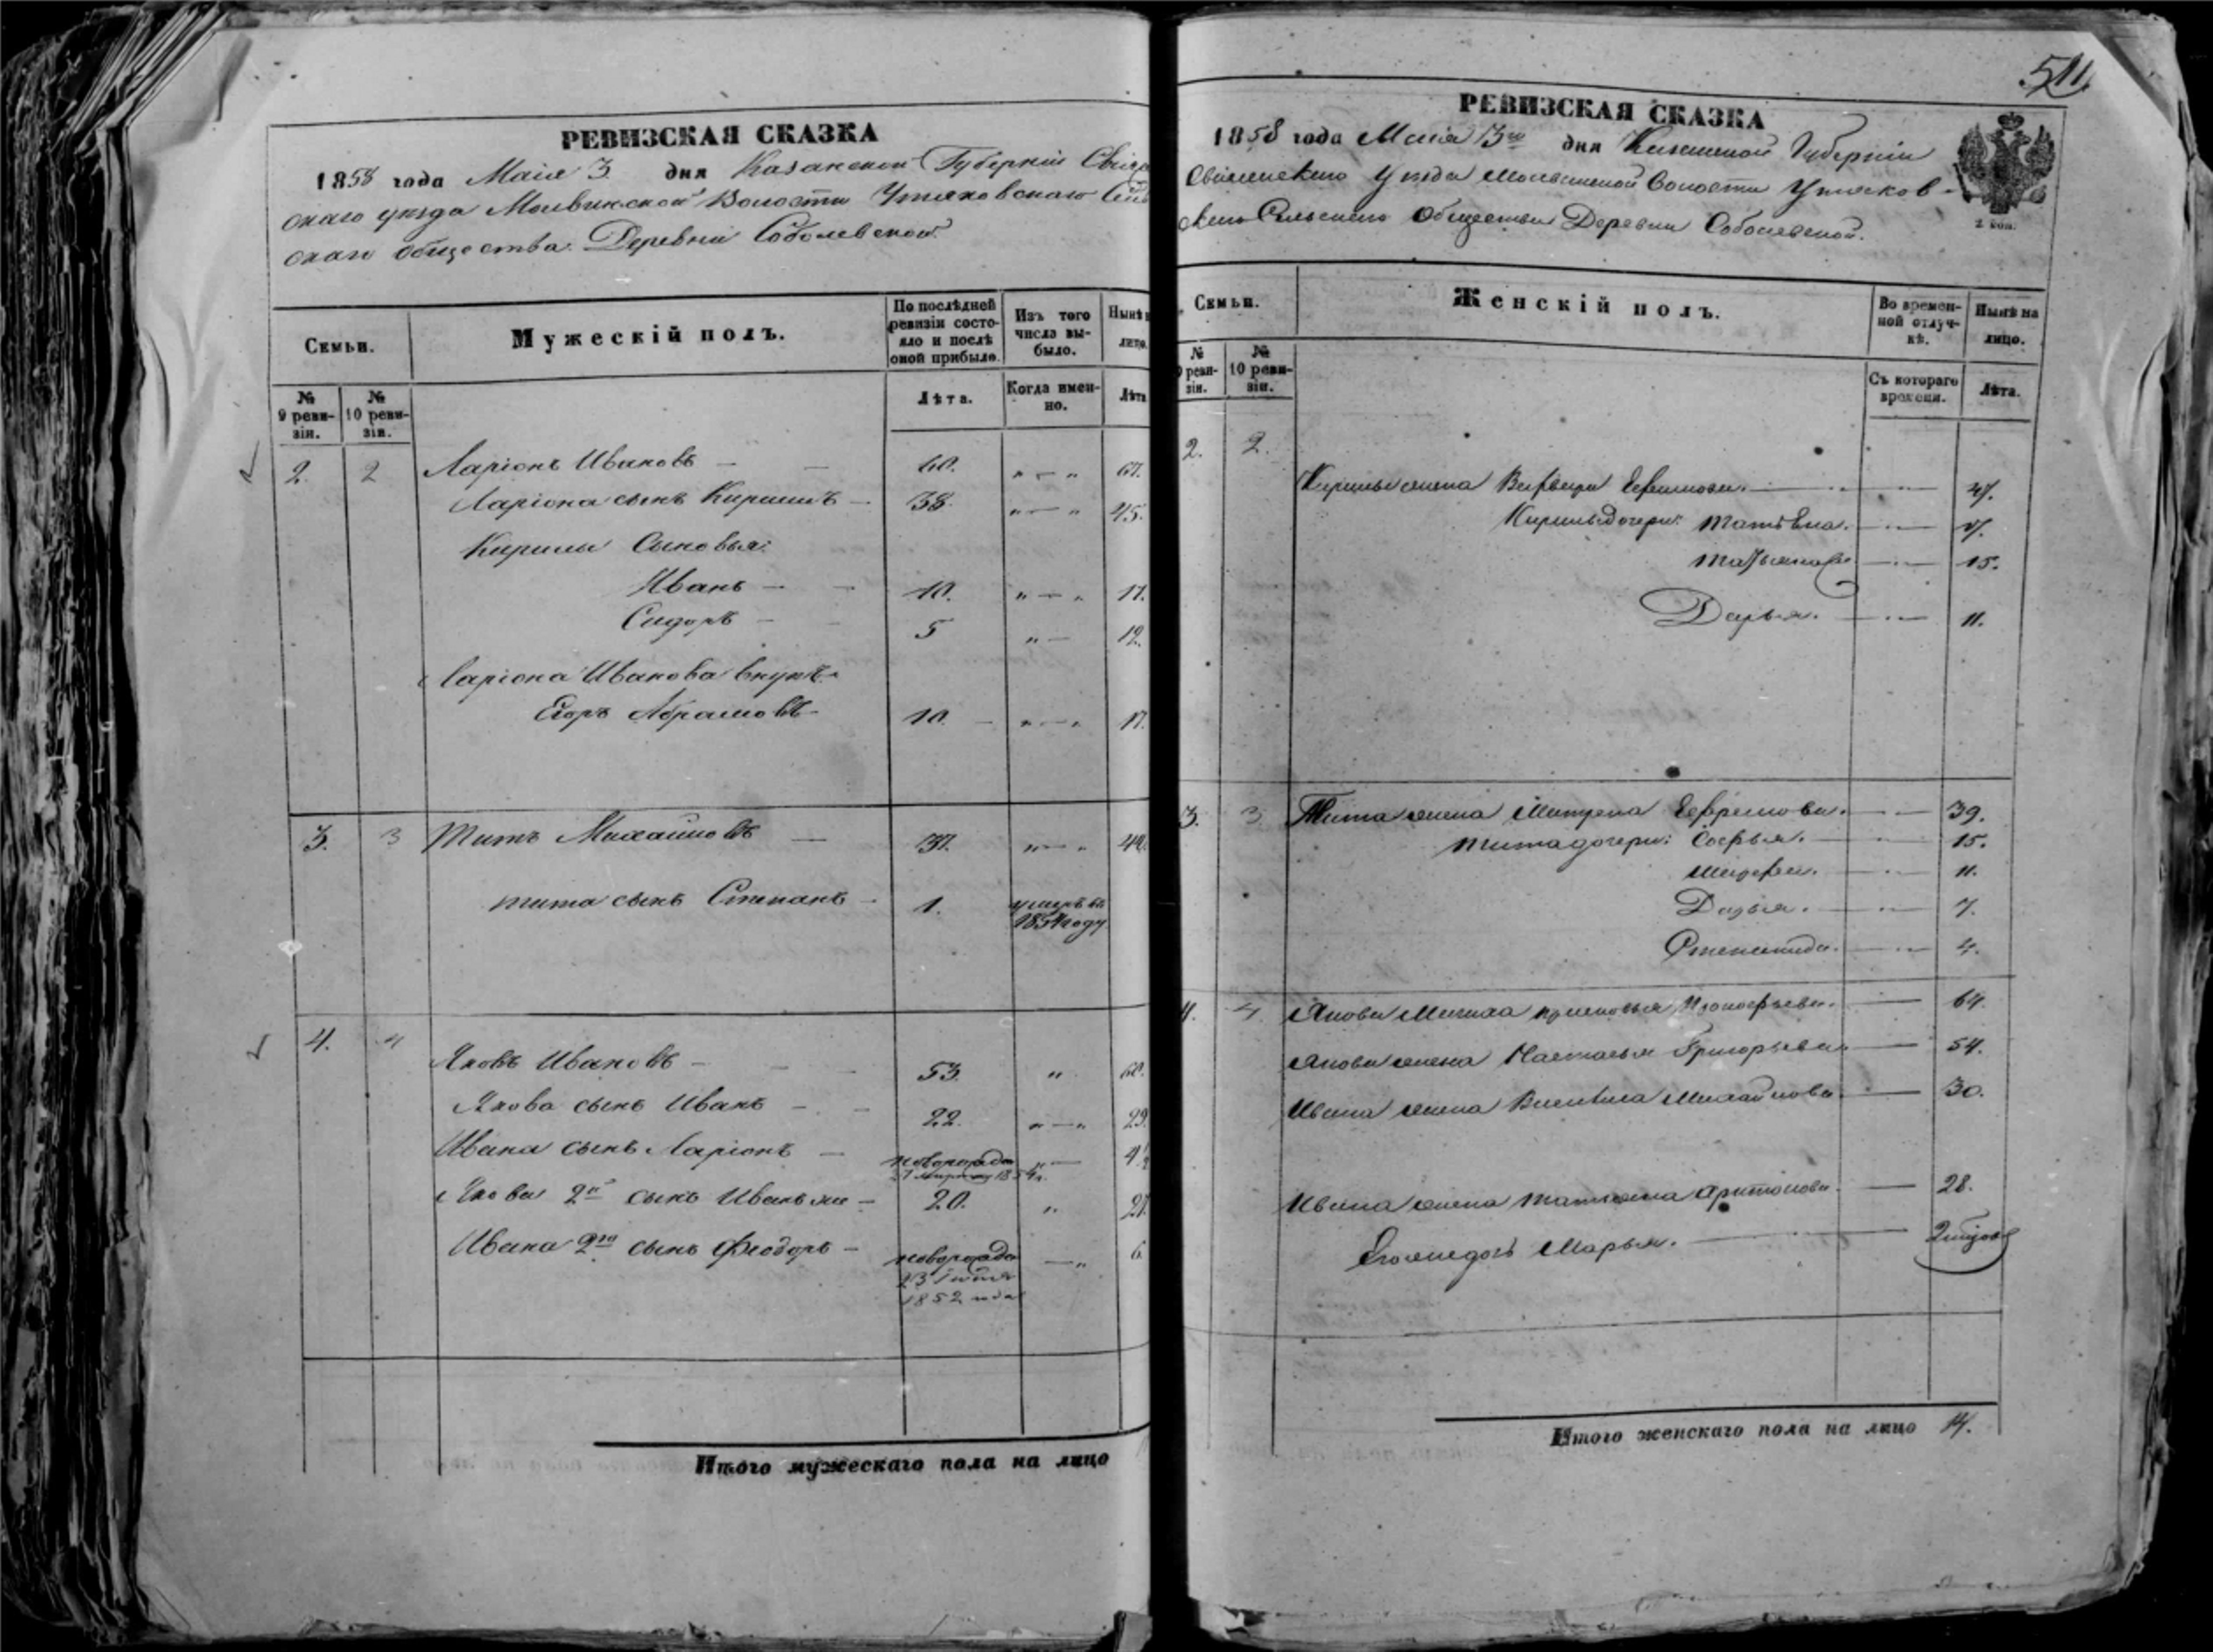 РЕВИЗСКАЯ СКАЗКА
1858 года Маія 3 дня Казанской Губерніи Свіяж
скаго уѣзда Молвинской Волости Утяковскаго Сель
скаго общества. Деревни Соболевской.
Семьи.
Мужескій полъ.
По послѣдней ревизіи состояло и послѣ оной прибыло.
Изъ того числа выбыло.
Нынѣ
лицо.
№ 9 ревизіи.
№ 10 ревизіи.
Лѣта.
Когда именно.
Лѣта
2. 2 Ларіонъ Ивановъ — 60. „ — „ 67.
Ларіона сынъ Кирилъ — 38. „ — „ 45.
Кирилы Сыновья:
Иванъ — 10. „ — „ 17.
Сидоръ — 5 „ — 12.
Ларіона Иванова внукъ
Егоръ Абрамовъ 10. — „ — „ 17.
3. 3 Титъ Михайловъ — 37. „ — „ 44.
Тита сынъ Степанъ — 1. умеръ въ
1854 году
4. 4
Яковъ Ивановъ — 53 „ 60.
Якова сынъ Иванъ — 22. „ — „ 29.
Ивана сынъ Ларіонъ — новорожде „ — 4
1854
Якова 2й сынъ Иванъ же — 20. „ 27.
Ивана 2го сынъ Феодоръ — новорожде — „ 6
23
1852 года
Итого мужескаго пола на лицо
511
РЕВИЗСКАЯ СКАЗКА
1858 года Маія 3го дня Казанской Губерніи
Свіяжскаго Уѣзда Молвинской Волости Утяков-
скаго Сельскаго Общества Деревни Соболевской.
2 коп.
Семьи.
Женскій полъ.
Во временной отлучкѣ.
Нынѣ на лицо.
№ 9 ревизіи.
№ 10 ревизіи.
Съ котораго времени.
Лѣта.
2. 2. Кирилы жена Варвара Ефимова. 47.
Кирилы дочери: Татьяна.
15.
Дарья. 11.
3. 3 Тита жена Матрена Ефремова. 39.
Тита дочери: Софья. 15.
11.
7.
Степанида. 4.
4. 4. Якова Мачиха Прокофьева. 64.
Якова жена Настасья Григорьева. 54.
Ивана жена Василиса Михайлова. 30.
Ивана жена Татьяна 28.
Его же дочь Марья.
Итого женскаго пола на лицо 14.